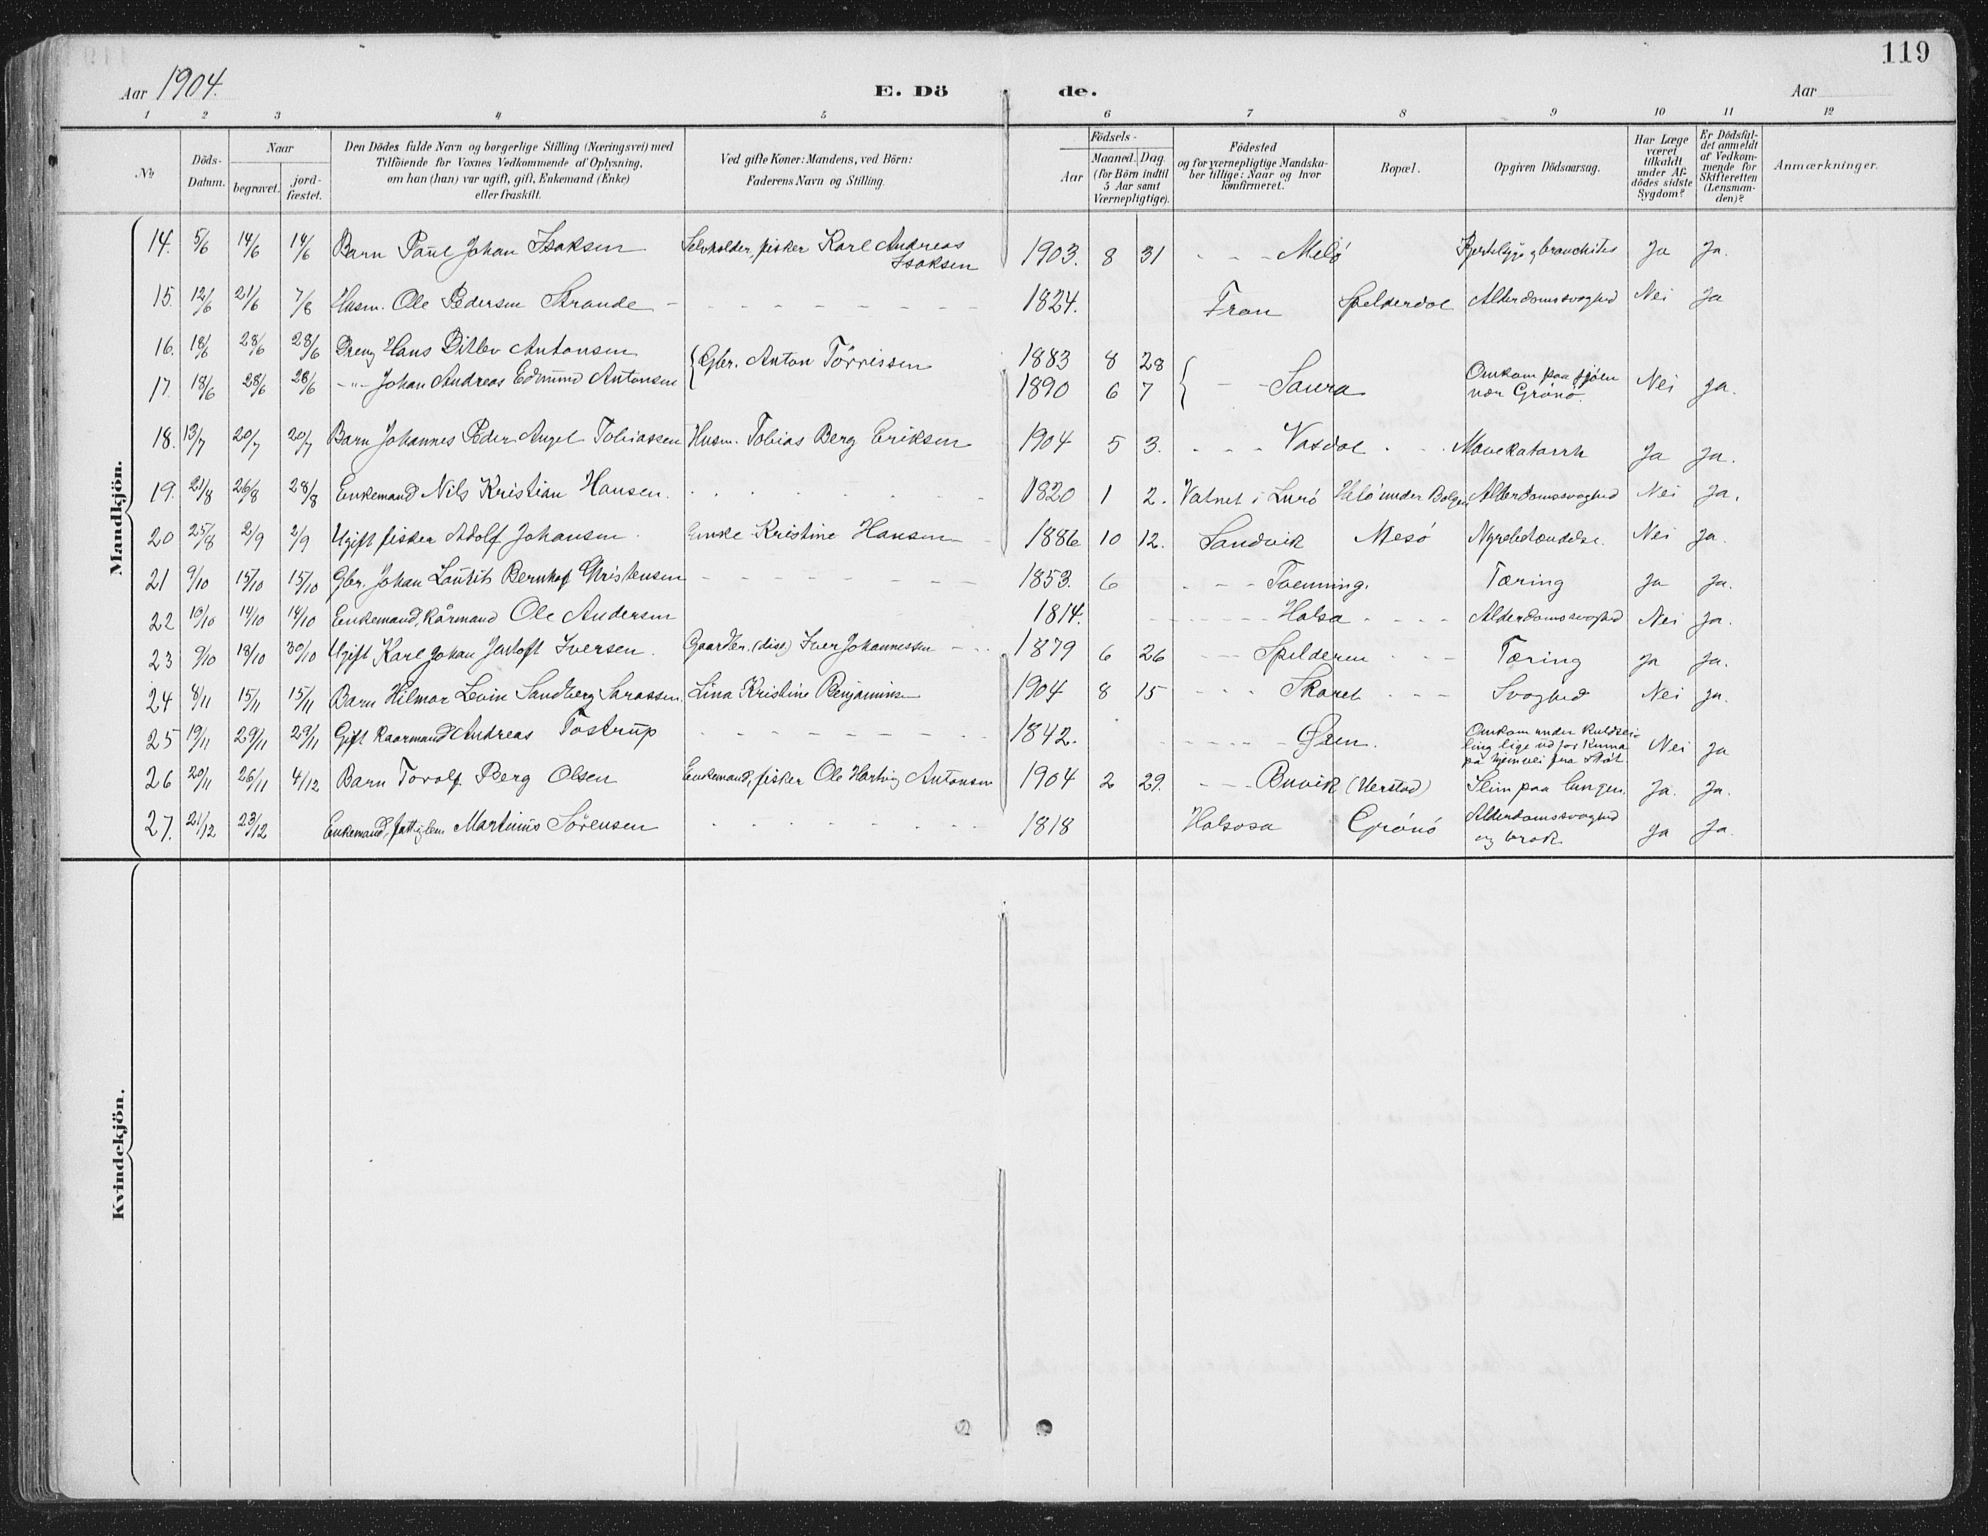 119
Aar 1904.
E. Dö de.
Aar
1 2 3 4 5 6 7 8 9 10 11 12
No
Döds-Datum.
Naar
begravet.
jord-fæstet.
Den Dödes fulde Navn og borgerlige Stilling (Næringsvei) med
Tilföiende for Voxnes Vedkommende af Oplysning,
om han (hun) var ugift, gift, Enkemand (Enke)
eller fraskilt.
Ved gifte Koner: Mandens, ved Börn:
Faderens Navn og Stilling.
Födsels-
Aar
Maaned. Dag.
(for Börn indtil
5 Aar samt
Værnepligtige).
Födested
og for værnepligtige Mandska-
ber tillige: Naar og hvor
konfirmeret.
Bopæl.
Opgiven Dödsaarsag.
Har Læge
været
tilkaldt
under Af-
dödes sidste
Sygdom?
Er Dödsfal-
det anmeldt
af Vedkom-
mende for
Skifteretten
(Lensman-
den)?
Anmærkninger.
Mandkjön.
14. 5/6 14/6 14/6 Barn Paul Johan Isaksen Selvholder, fisker Karl Andreas Isaksen 1903. 8 31 - - - Melö bronchites Ja Ja.
15. 12/6 21/6 7/8 Husm. Ole Pedersen Strande - - - 1824. Tran Spelderdal Alderdomssvaghed Nei Ja
16. 18/6 28/6 28/6 Dreng Hans Ditlev Antonsen { Gbr. Anton Törrissen 1883 8 28
17. 18/6 28/6 28/6 -"- Johan Andreas Edmund Antonsen 1890 6 7 { - - Saura Omkom paa sjöen nær Grönö. Nei Ja.
18. 13/7 20/7 20/7 Barn Johannes Peder Angel Tobiassen Husm. Tobias Berg Eriksen 1904 5 3. - - - Vasdal - - Mavekatarrh Ja Ja.
19. 21/8 26/8 28/8 Enkemand Nils Kristian Hansen. - - - 1820 1 2. Vatnet i Lurö under Bolgen Alderdomssvaghed Nei Ja.
20 25/8 2/9 2/9 Ugift fisker Adolf Johansen. Enke Kristine Hansen 1886 10 12. Sandvik Mesö Nyrebetændelse. Nei Ja.
21 9/10 15/10 15/10 Gbr. Johan Lautits Bernhof Christensen - - - 1853. 6 - - - Taenning. Tæring Ja Ja.
22 10/10 14/10 14/10 Enkemand, kårmand Ole Andersen 1814. - - - Halsa - - - Alderdomssvaghed Nei Ja.
23 9/10 18/10 30/10 Ugift Karl Johan Jentoft Iversen. Gaardbr. (död) Iver Johannessen - - - 1879 6 26 - - - Spilderen - - - Tæring Ja Ja.
24 8/11 15/11 15/11 Barn Hilmar Levin Sandberg Lina Kristine Benjaminsen 1904 8 15 - - - Skaret - - - Svaghed Nei Ja.
25 19/11 29/11 29/11 Gift kaarmand Andreas Tostrup - - - 1842. - - - Øren. Omkom under kuldsei-
ling lige ud for Kunna
på hjemvei fra Stöt. Nei Ja
26 20/11 26/11 4/12 Barn Torolf Berg Olsen Enkemand, fisker Ole Hartvig Antonsen 1904 2 29. - - - Buvik (Verstad) Slim paa lungen. Ja. Ja.
27. 21/12 23/12 Enkemand, fattiglem Martinus Sörensen - - - 1818 Halsosa Grönö Alderdomssvaghed og brok Ja Ja.
Kvindekjön.